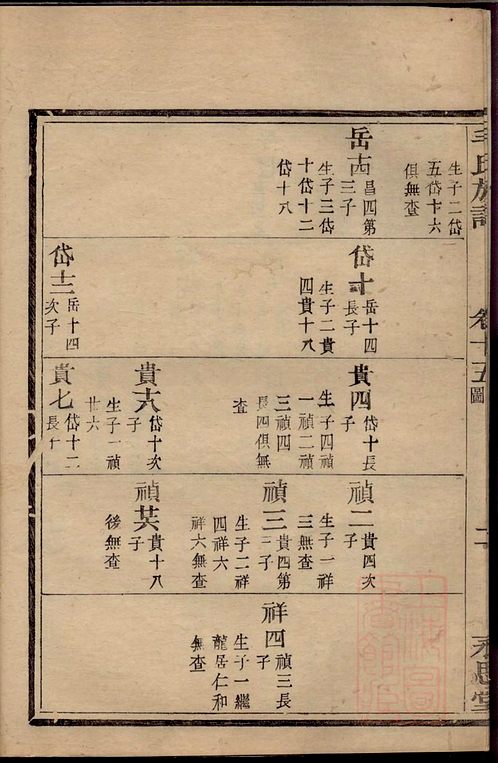 毛氏族譜
卷十五圖
永思堂
生子二岱
五岱十六
俱無查
岳十四
昌四第
三子
生子三岱
十岱十二
岱十八
岱十
岳十四
長子
生子二貴
四貴十八
岱十二
岳十四
次子
貴四
岱十長
子
生子四禎
一禎二禎
三禎四
長四俱無
查
貴十八
岱十次
子
生子一禎
廿六
貴七
岱十二
長子
禎二
貴四次
子
生子一祥
三無查
禎三
貴四第
三子
生子二祥
四祥六
祥六無查
禎廿六
貴十八
子
後無查
祥四
禎三長
子
生子一繼
龍居仁和
無查